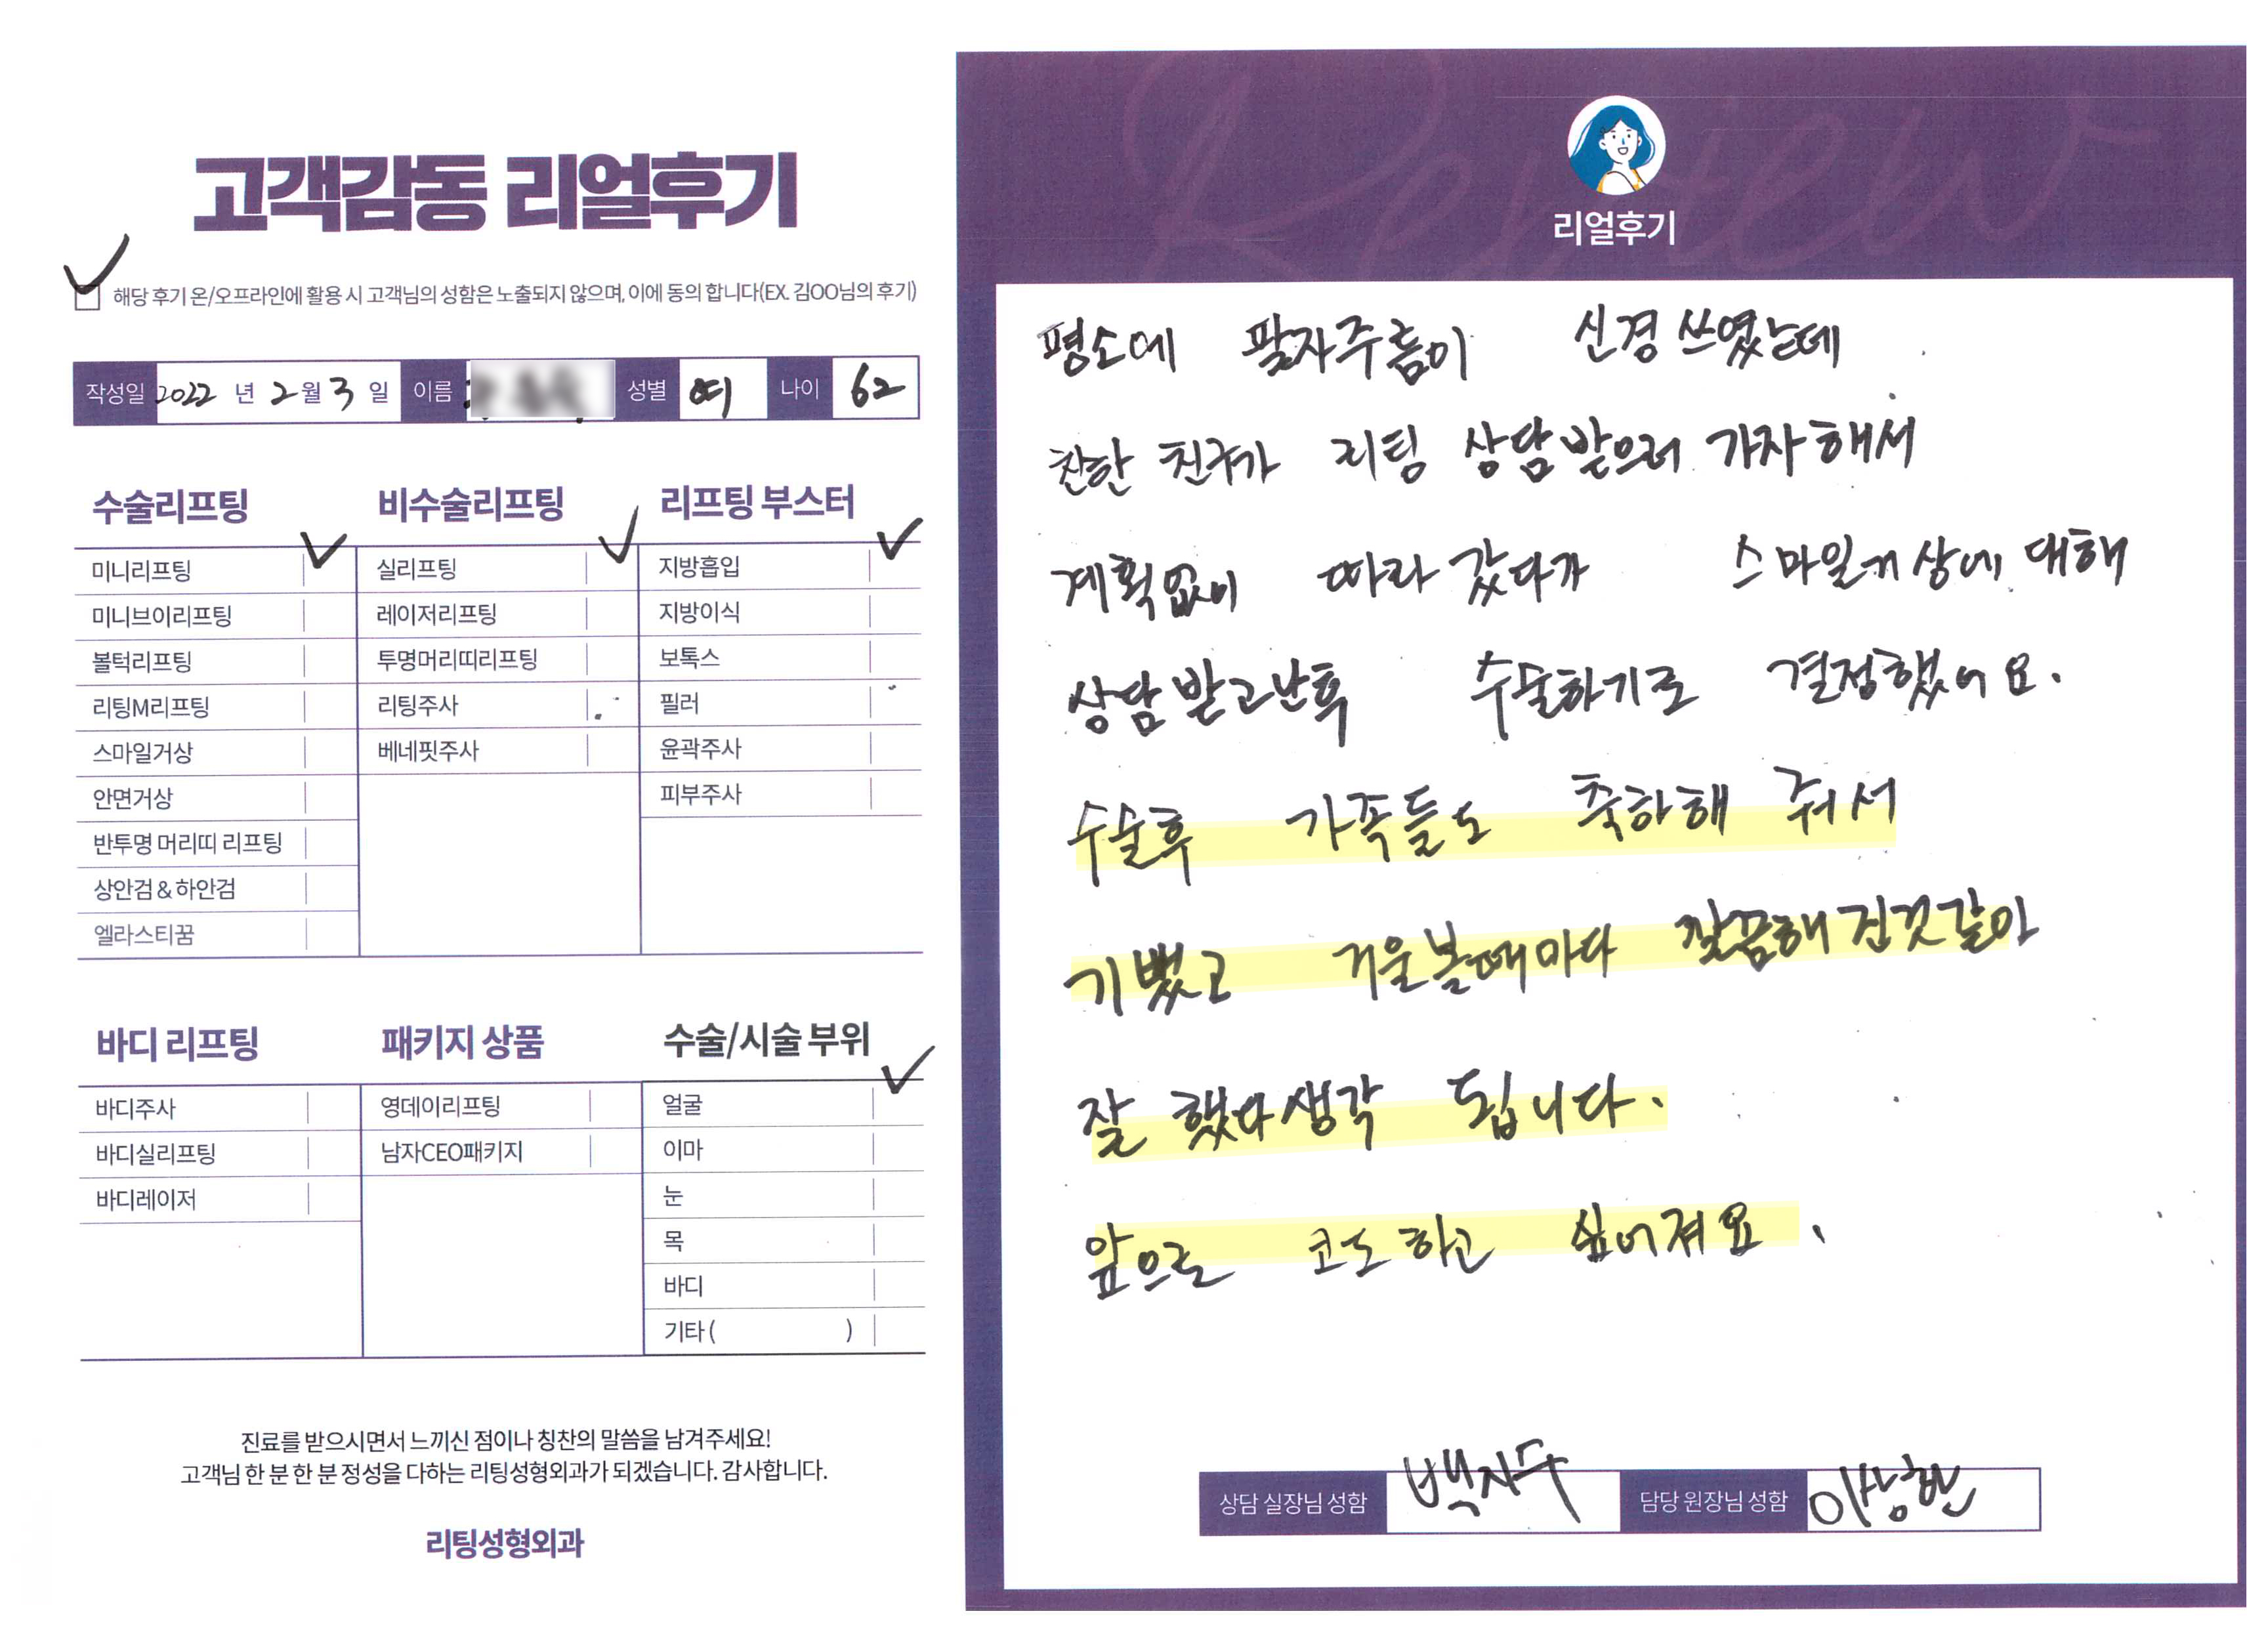 고객감동 리얼후기
해당 후기 온/오프라인에 활용 시 고객님의 성함은 노출되지 않으며, 이에 동의 합니다(EX. 김OO님의 후기)
작성일 2022 년 2월 3 일 이름 성별 여 나이 62
수술리프팅
미니리프팅
미니브이리프팅
볼턱리프팅
리팅M리프팅
스마일거상
안면거상
반투명 머리띠 리프팅
상안검 & 하안검
엘라스티꿈
비수술리프팅
실리프팅
레이저리프팅
투명머리띠리프팅
리팅주사
베네핏주사
리프팅 부스터
지방흡입
지방이식
보톡스
필러
윤곽주사
피부주사
바디 리프팅
바디주사
바디실리프팅
바디레이저
패키지 상품
영데이리프팅
남자CEO패키지
수술/시술 부위
얼굴
이마
눈
목
바디
기타 ( )
진료를 받으시면서 느끼신 점이나 칭찬의 말씀을 남겨주세요!
고객님 한 분 한 분 정성을 다하는 리팅성형외과가 되겠습니다. 감사합니다.
리팅성형외과
Review
리얼후기
평소에 팔자주름이 신경 쓰였는데
친한 친구가 리팅 상담받으러 가자해서
계획없이 따라갔다가 스마일거상에 대해
상담받고난후 수술하기로 결정했어요.
수술후 가족들도 축하해 줘서
기뻤고 거울볼때마다 깔끔해진것같아
잘 했다생각 됩니다.
앞으로 코도하고 싶어져요.
상담 실장님 성함 백지수 담당 원장님 성함 이상한